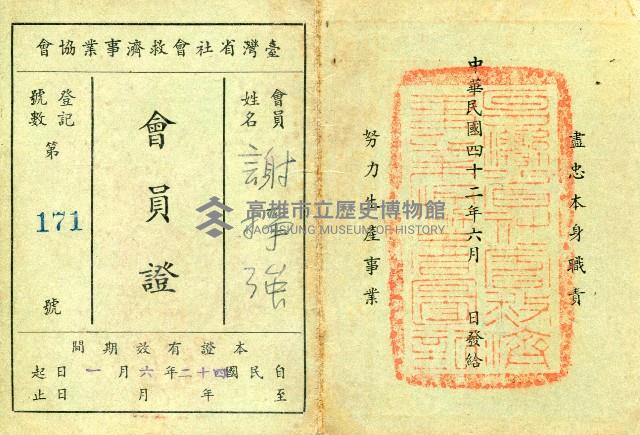 盡忠本身職責
中華民國四十二年六月 日發給
努力生產事業
臺灣省社會救濟事業協會
會員姓名 謝 強
會員證
登記號數 第 171 號
本證有效期間
自民國四十二年六月一日起
至 年 月 日止
高雄市立歷史博物館
KAOHSIUNG MUSEUM OF HISTORY